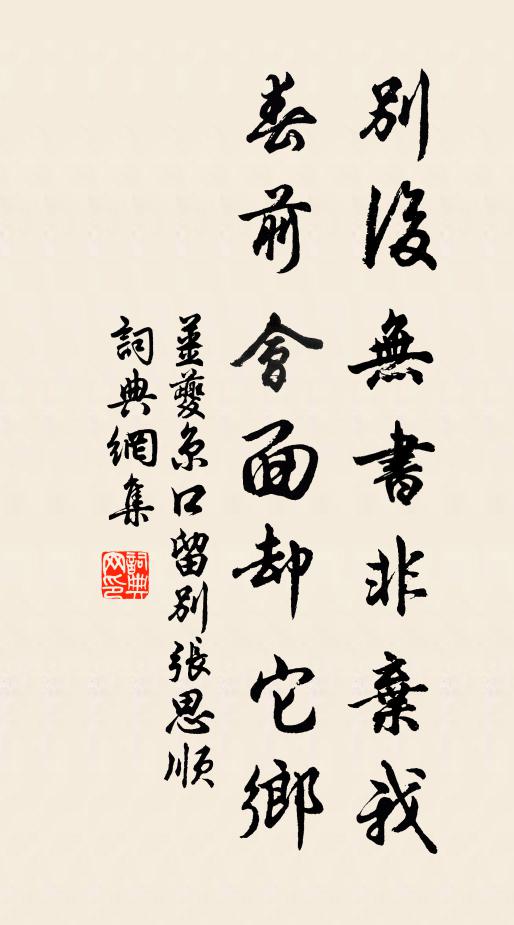 別後無書非棄我
春前會面却它鄉
姜夔京口留別張思順
詞典網集
詞典网印